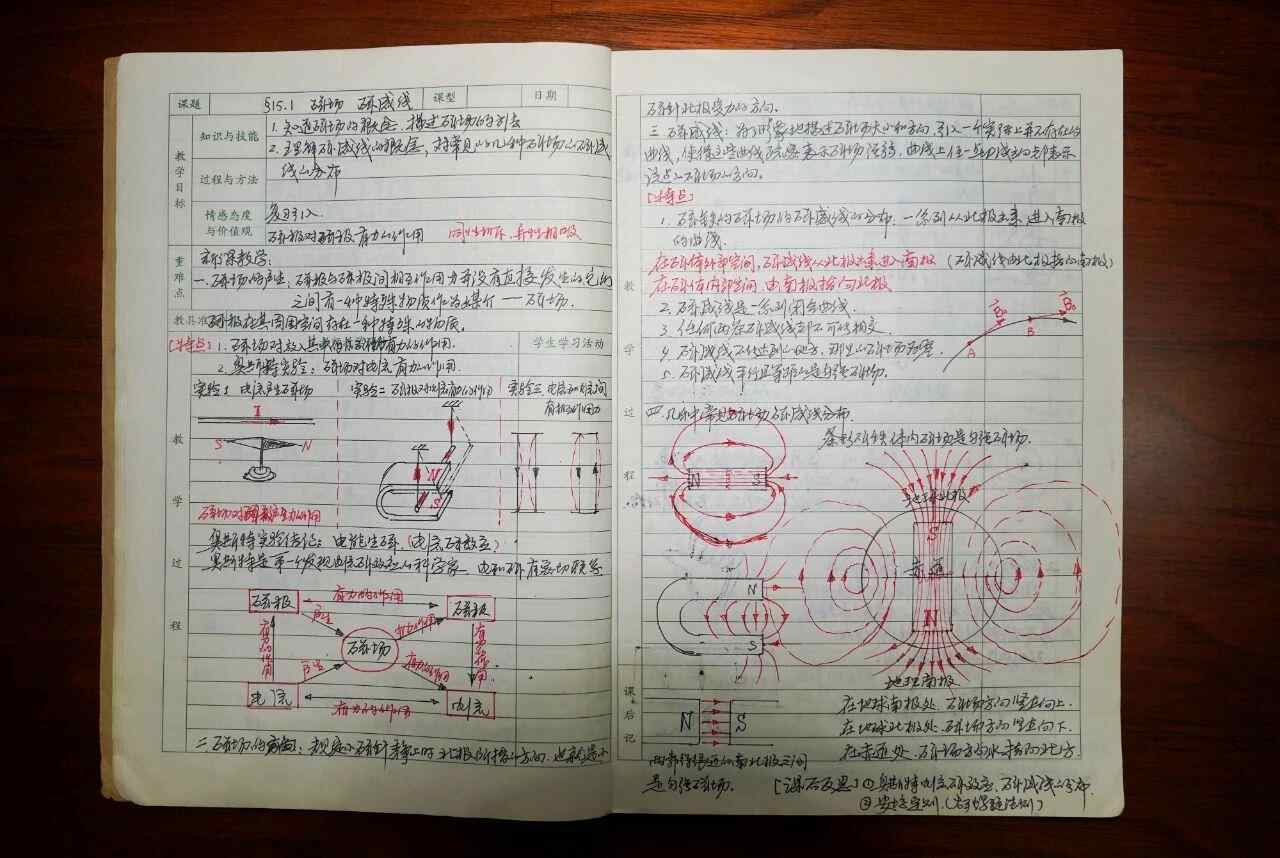 课题 §15.1 磁场 磁感线 课型 日期
教学目标
知识与技能
1. 知道磁场的概念,描述磁场的方法
2. 理解磁感线的概念,对常见的几种磁场的磁感线的分布
过程与方法
情感态度与价值观
复习引入
磁极对磁极有力的作用 同性相斥,异性相吸
重难点
新课教学:
一、磁场的产生,磁极与磁极间相互作用力并没有直接发生的它们
之间有一种特殊物质作为媒介——磁场.
教具准
磁极在其周围空间存在一种特殊的物质.
[特点] 1. 磁场对放入其中的磁极有力的作用. 学生学习活动
2. 奥斯特实验:磁场对电流有力的作用.
实验1 电流产生磁场 实验二 磁极对电流有力的作用 实验三. 电流和电流间
有相互作用力
I
S N
N
S
磁场对产生力的作用
奥斯特实验结论:电能生磁.(电流磁效应)
奥斯特是第一个发现电流磁效应的科学家. 电和磁有密切联系
磁极 有力的作用 磁极
产生 有力的作用
有力的作用 磁场 有力的作用
产生 有力的作用
电流 有力的作用 电流
教学过程
二、磁场的方向:规定小磁针静止时北极所指的方向.也就是小
磁针北极受力的方向.
三、磁感线:为了形象地描述磁场大小和方向,引入一个实际上并不存在的
曲线,使得这些曲线疏密表示磁场强弱,曲线上任一点切线方向都表示
该点的磁场的方向.
[特点]
1. 磁铁的磁场的磁感线的分布.一系列从北极出来,进入南极
的曲线.
在磁体外部空间,磁感线从北极出来进入南极 (磁感线由北极指向南极)
在磁体内部空间 由南极指向北极
2. 磁感线是一系列闭合曲线.
3. 任何两条磁感线都不可能相交.
4. 磁感线不能达到的地方,那里的磁场为零.
5. 磁感线平行且等距的是匀强磁场.
A B
教学过程
四、几种常见磁场磁感线分布.
条形磁铁体内磁场是匀强磁场.
N S
地球北极
S
赤道
N
地球南极
N
S
课后记
N S
在地球南极处,磁场方向竖直向上.
在地球北极处,磁场方向竖直向下.
在赤道处,磁场方向水平指向北方
两靠得很近的南北极之间
是匀强磁场.
[课后反思] ①奥斯特电流磁效应、磁感线的分布
②安培定则.(右手螺旋法则)